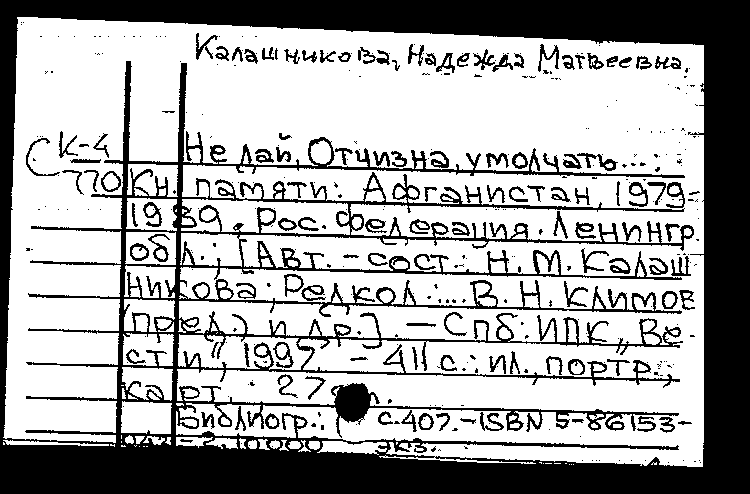 Калашникова, Надежда Матвеевна.
С К-4
770
Не дай, Отчизна, умолчать...:
Кн. памяти: Афганистан, 1979-
1989. Рос. Федерация. Ленингр.
обл.; [Авт.-сост.: Н. М. Калаш
никова; Редкол.:... В. Н. Климов
(пред.) и др.]. — Спб: ИПК „Ве-
сти", 1997. - 411 с.: ил., портр.,
карт.; 27
Библиогр.: с.407.-ISBN 5-86153-
042-2, 10000 экз.